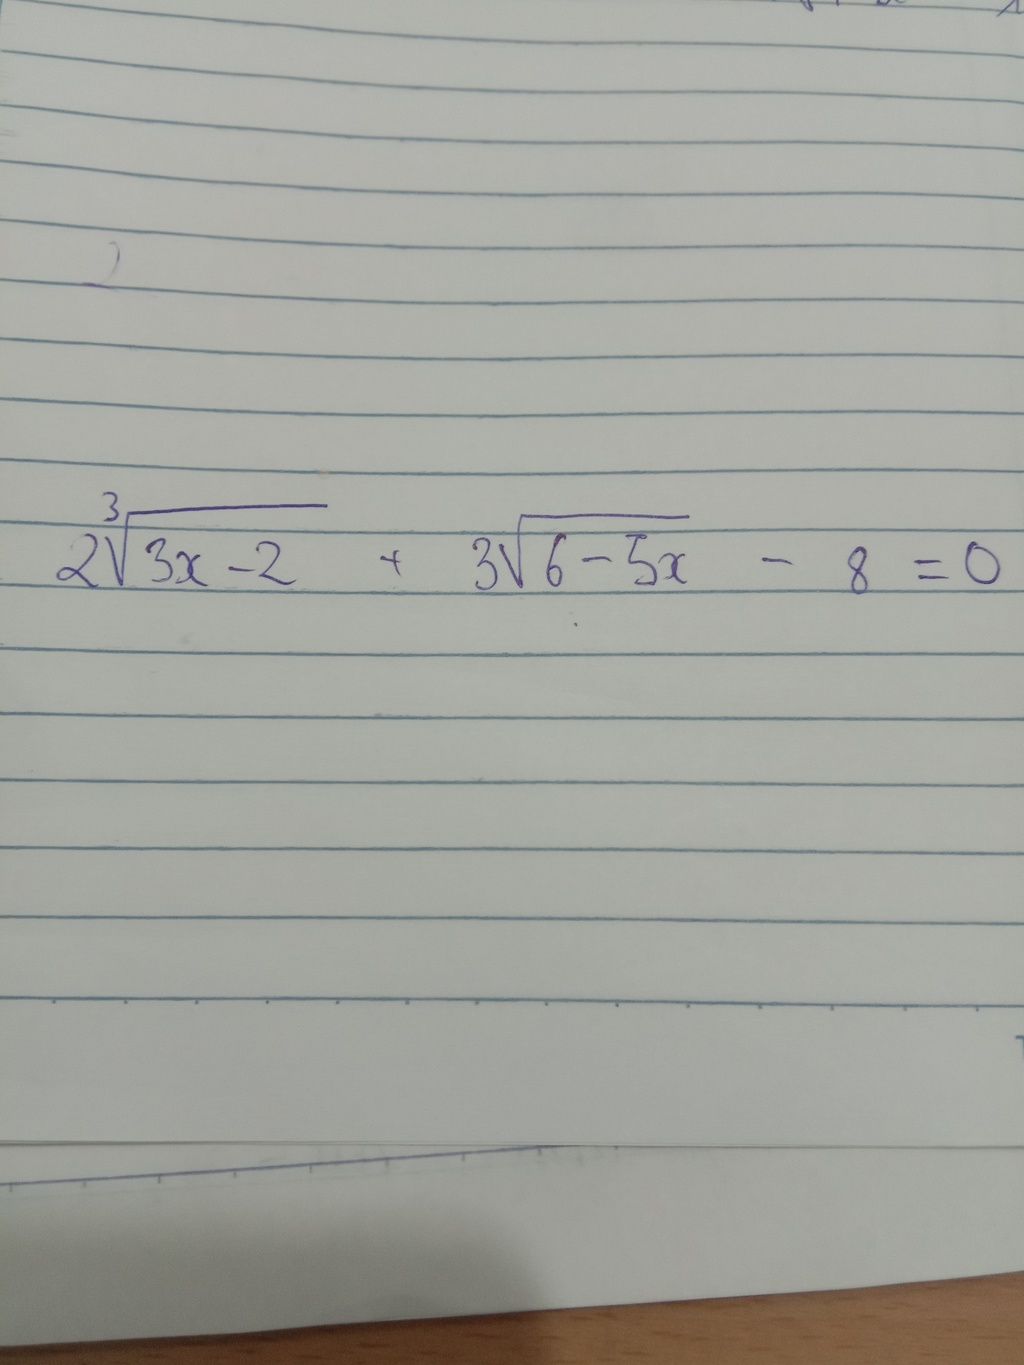 2∛(3x-2) + 3√(6-5x) - 8 = 0